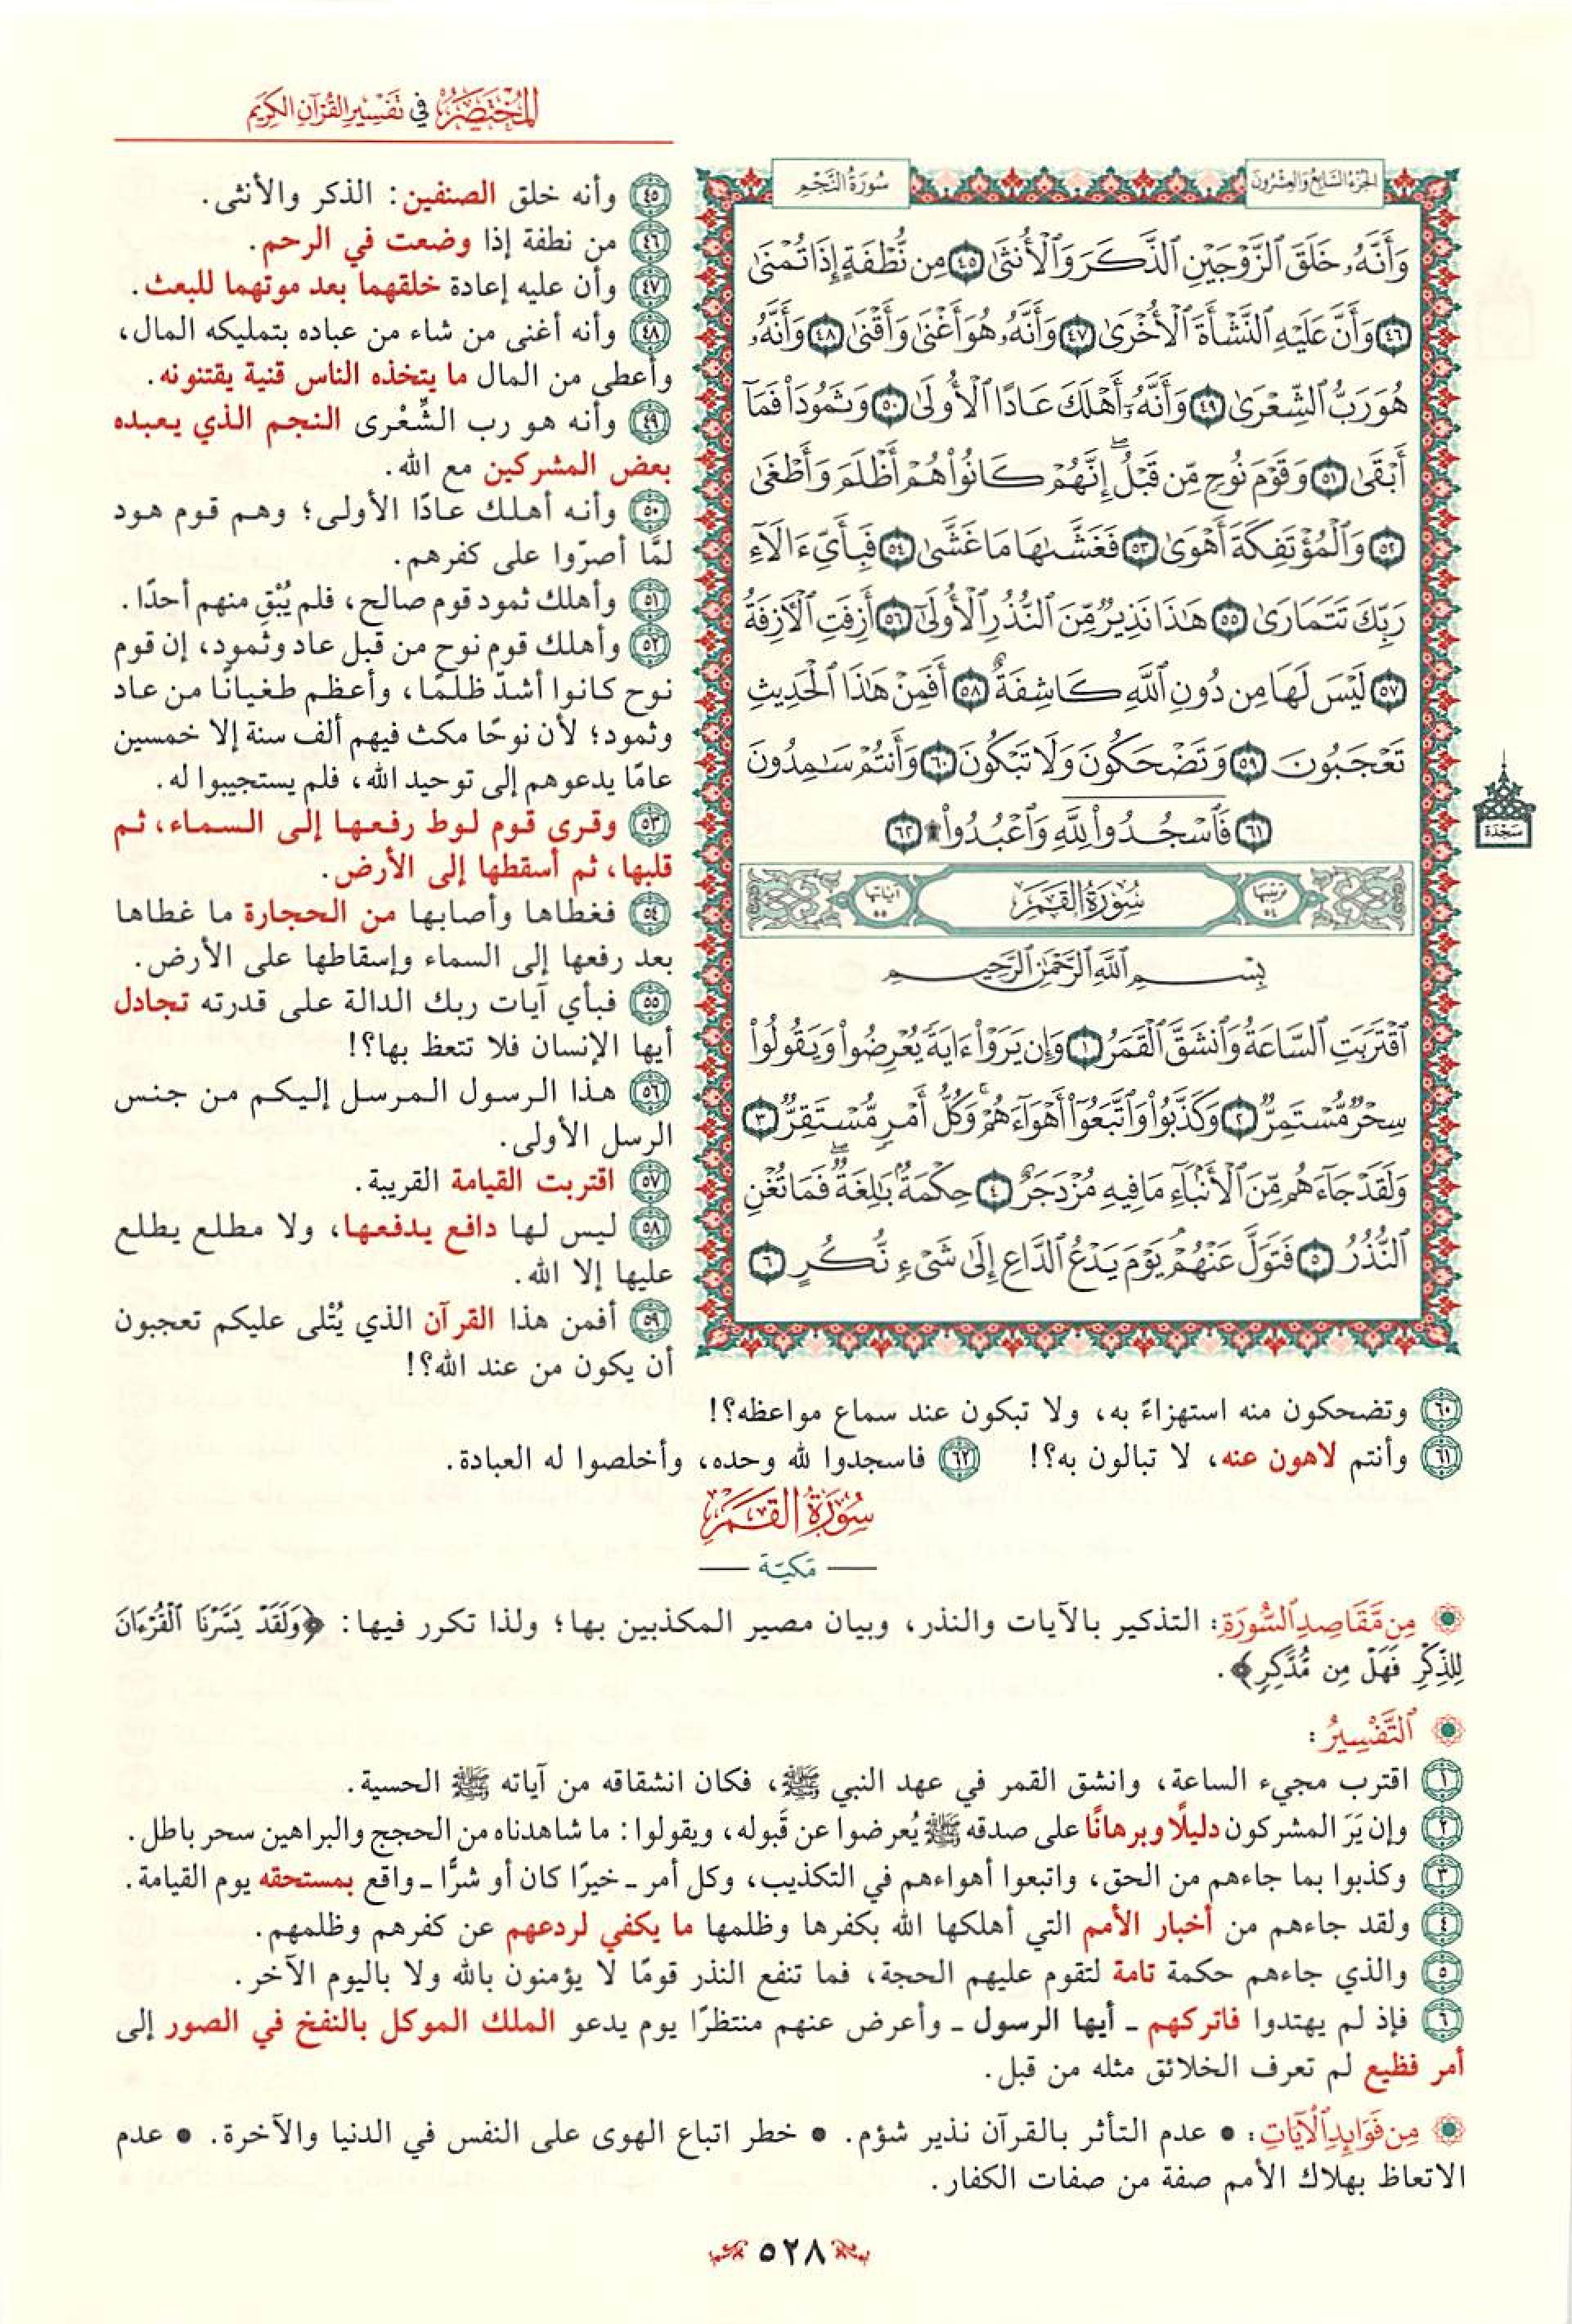 المختصر في تفسير القرآن الكريم
الجزء السابع والعشرون
سورة النجم
وَأَنَّهُۥ خَلَقَ ٱلزَّوْجَيْنِ ٱلذَّكَرَ وَٱلْأُنثَىٰ ٤٥ مِن نُّطْفَةٍ إِذَا تُمْنَىٰ
٤٦ وَأَنَّ عَلَيْهِ ٱلنَّشْأَةَ ٱلْأُخْرَىٰ ٤٧ وَأَنَّهُۥ هُوَ أَغْنَىٰ وَأَقْنَىٰ ٤٨ وَأَنَّهُۥ
هُوَ رَبُّ ٱلشِّعْرَىٰ ٤٩ وَأَنَّهُۥٓ أَهْلَكَ عَادًا ٱلْأُولَىٰ ٥٠ وَثَمُودَا۟ فَمَآ
أَبْقَىٰ ٥١ وَقَوْمَ نُوحٍ مِّن قَبْلُ ۖ إِنَّهُمْ كَانُوا۟ هُمْ أَظْلَمَ وَأَطْغَىٰ
٥٢ وَٱلْمُؤْتَفِكَةَ أَهْوَىٰ ٥٣ فَغَشَّىٰهَا مَا غَشَّىٰ ٥٤ فَبِأَىِّ ءَالَآءِ
رَبِّكَ تَتَمَارَىٰ ٥٥ هَـٰذَا نَذِيرٌ مِّنَ ٱلنُّذُرِ ٱلْأُولَىٰٓ ٥٦ أَزِفَتِ ٱلْـَٔازِفَةُ
٥٧ لَيْسَ لَهَا مِن دُونِ ٱللَّهِ كَاشِفَةٌ ٥٨ أَفَمِنْ هَـٰذَا ٱلْحَدِيثِ
تَعْجَبُونَ ٥٩ وَتَضْحَكُونَ وَلَا تَبْكُونَ ٦٠ وَأَنتُمْ سَـٰمِدُونَ
٦١ فَٱسْجُدُوا۟ لِلَّهِ وَٱعْبُدُوا۟ ۩ ٦٢
سجدة
ترتيبها ٥٤ سورة القمر آياتها ٥٥
بِسْمِ ٱللَّهِ ٱلرَّحْمَـٰنِ ٱلرَّحِيمِ
ٱقْتَرَبَتِ ٱلسَّاعَةُ وَٱنشَقَّ ٱلْقَمَرُ ١ وَإِن يَرَوْا۟ ءَايَةً يُعْرِضُوا۟ وَيَقُولُوا۟
سِحْرٌ مُّسْتَمِرٌّ ٢ وَكَذَّبُوا۟ وَٱتَّبَعُوٓا۟ أَهْوَآءَهُمْ ۚ وَكُلُّ أَمْرٍ مُّسْتَقِرٌّ ٣
وَلَقَدْ جَآءَهُم مِّنَ ٱلْأَنۢبَآءِ مَا فِيهِ مُزْدَجَرٌ ٤ حِكْمَةٌۢ بَـٰلِغَةٌ ۖ فَمَا تُغْنِ
ٱلنُّذُرُ ٥ فَتَوَلَّ عَنْهُمْ ۘ يَوْمَ يَدْعُ ٱلدَّاعِ إِلَىٰ شَىْءٍ نُّكُرٍ ٦
٤٥ وأنه خلق الصنفين: الذكر والأنثى.
٤٦ من نطفة إذا وضعت في الرحم.
٤٧ وأن عليه إعادة خلقهما بعد موتهما للبعث.
٤٨ وأنه أغنى من شاء من عباده بتمليكه المال،
وأعطى من المال ما يتخذه الناس قنية يقتنونه.
٤٩ وأنه هو رب الشِّعْرى النجم الذي يعبده
بعض المشركين مع الله.
٥٠ وأنه أهلك عادًا الأولى؛ وهم قوم هود
لمَّا أصرّوا على كفرهم.
٥١ وأهلك ثمود قوم صالح، فلم يُبْقِ منهم أحدًا.
٥٢ وأهلك قوم نوح من قبل عاد وثمود، إن قوم
نوح كانوا أشدّ ظلمًا، وأعظم طغيانًا من عاد
وثمود؛ لأن نوحًا مكث فيهم ألف سنة إلا خمسين
عامًا يدعوهم إلى توحيد الله، فلم يستجيبوا له.
٥٣ وقرى قوم لوط رفعها إلى السماء، ثم
قلبها، ثم أسقطها إلى الأرض.
٥٤ فغطاها وأصابها من الحجارة ما غطاها
بعد رفعها إلى السماء وإسقاطها على الأرض.
٥٥ فبأي آيات ربك الدالة على قدرته تجادل
أيها الإنسان فلا تتعظ بها؟!
٥٦ هذا الرسول المرسل إليكم من جنس
الرسل الأولى.
٥٧ اقتربت القيامة القريبة.
٥٨ ليس لها دافع يدفعها، ولا مطلع يطلع
عليها إلا الله.
٥٩ أفمن هذا القرآن الذي يُتْلى عليكم تعجبون
أن يكون من عند الله؟!
٦٠ وتضحكون منه استهزاءً به، ولا تبكون عند سماع مواعظه؟!
٦١ وأنتم لاهون عنه، لا تبالون به؟! ٦٢ فاسجدوا لله وحده، وأخلصوا له العبادة.
سورة القمر
— مكية —
من مقاصد السورة: التذكير بالآيات والنذر، وبيان مصير المكذبين بها؛ ولذا تكرر فيها: ﴿وَلَقَدْ يَسَّرْنَا ٱلْقُرْءَانَ
لِلذِّكْرِ فَهَلْ مِن مُّدَّكِرٍ﴾.
التفسير:
١ اقترب مجيء الساعة، وانشق القمر في عهد النبي ﷺ، فكان انشقاقه من آياته ﷺ الحسية.
٢ وإن يَرَ المشركون دليلًا وبرهانًا على صدقه ﷺ يُعرضوا عن قَبوله، ويقولوا: ما شاهدناه من الحجج والبراهين سحر باطل.
٣ وكذبوا بما جاءهم من الحق، واتبعوا أهواءهم في التكذيب، وكل أمر ـ خيرًا كان أو شرًّا ـ واقع بمستحقه يوم القيامة.
٤ ولقد جاءهم من أخبار الأمم التي أهلكها الله بكفرها وظلمها ما يكفي لردعهم عن كفرهم وظلمهم.
٥ والذي جاءهم حكمة تامة لتقوم عليهم الحجة، فما تنفع النذر قومًا لا يؤمنون بالله ولا باليوم الآخر.
٦ فإذ لم يهتدوا فاتركهم ـ أيها الرسول ـ وأعرض عنهم منتظرًا يوم يدعو الملك الموكل بالنفخ في الصور إلى
أمر فظيع لم تعرف الخلائق مثله من قبل.
من فوائد الآيات: • عدم التأثر بالقرآن نذير شؤم. • خطر اتباع الهوى على النفس في الدنيا والآخرة. • عدم
الاتعاظ بهلاك الأمم صفة من صفات الكفار.
٥٢٨